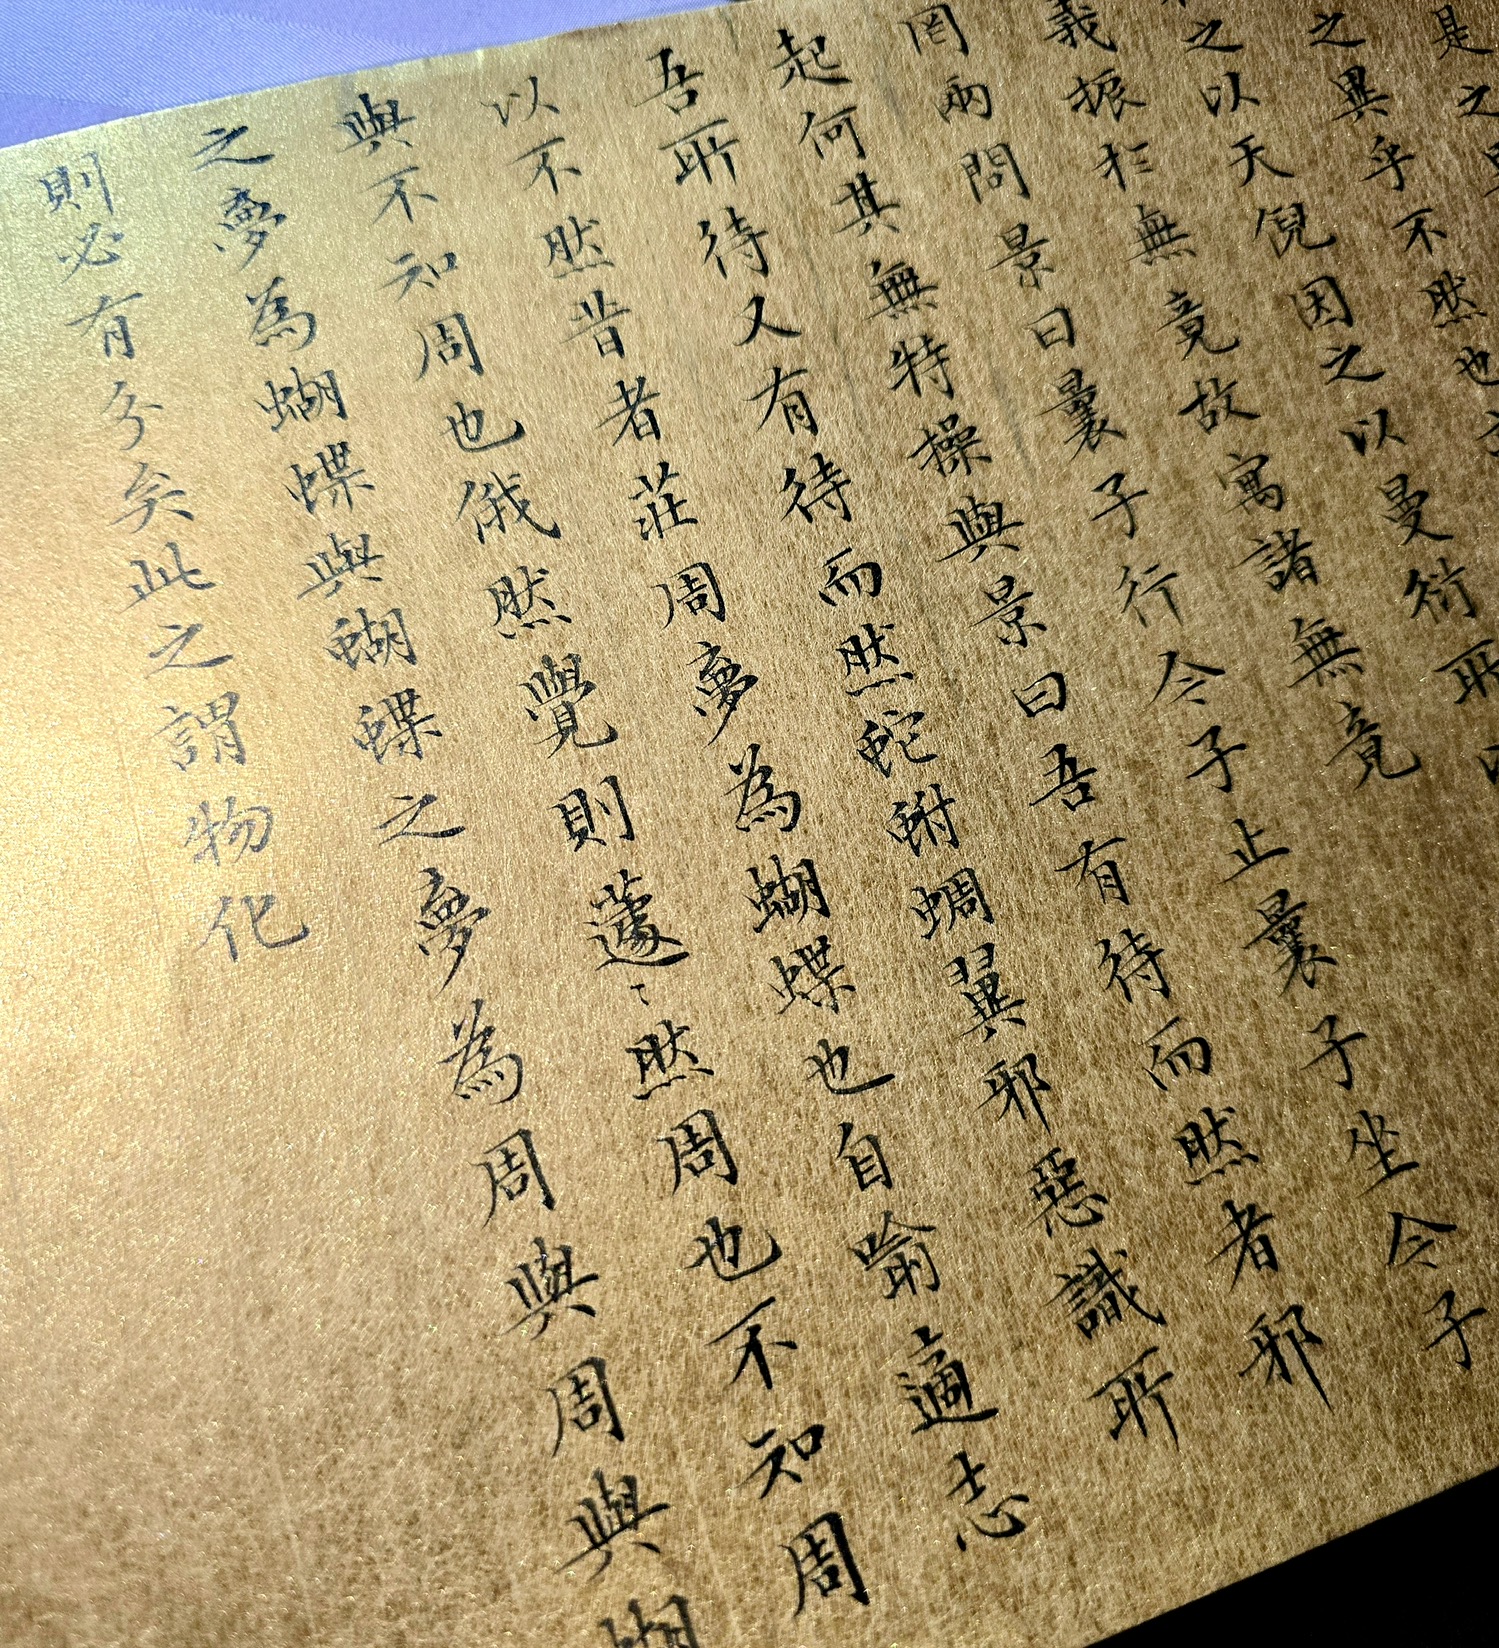 是之
之異乎不然也
之以天倪因之以曼衍所
義振於無竟故寓諸無竟
罔兩問景曰曩子行今子止曩子坐今子
起何其無特操與景曰吾有待而然者邪
吾所待又有待而然蛇蚹蜩翼邪惡識所
以不然昔者莊周夢為蝴蝶也自喻適志
與不知周也俄然覺則蘧〻然周也不知周
之夢為蝴蝶與蝴蝶之夢為周與周與蝴
則必有分矣此之謂物化